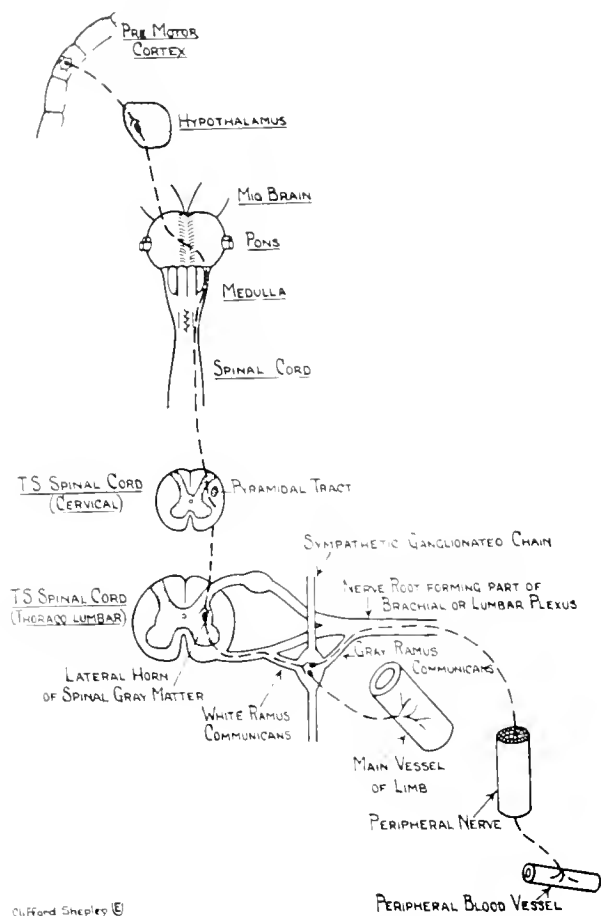 PRE MOTOR
CORTEX
HYPOTHALAMUS
MID BRAIN
PONS
MEDULLA
SPINAL CORD
TS SPINAL CORD
(CERVICAL)
PYRAMIDAL TRACT
SYMPATHETIC GANGLIONATED CHAIN
TS SPINAL CORD
(THORACO LUMBAR)
NERVE ROOT FORMING PART OF
BRACHIAL OR LUMBAR PLEXUS
GRAY RAMUS
COMMUNICANS
LATERAL HORN
OF SPINAL GRAY MATTER
WHITE RAMUS
COMMUNICANS
MAIN VESSEL
OF LIMB
PERIPHERAL NERVE
PERIPHERAL BLOOD VESSEL
Clifford Shepley E